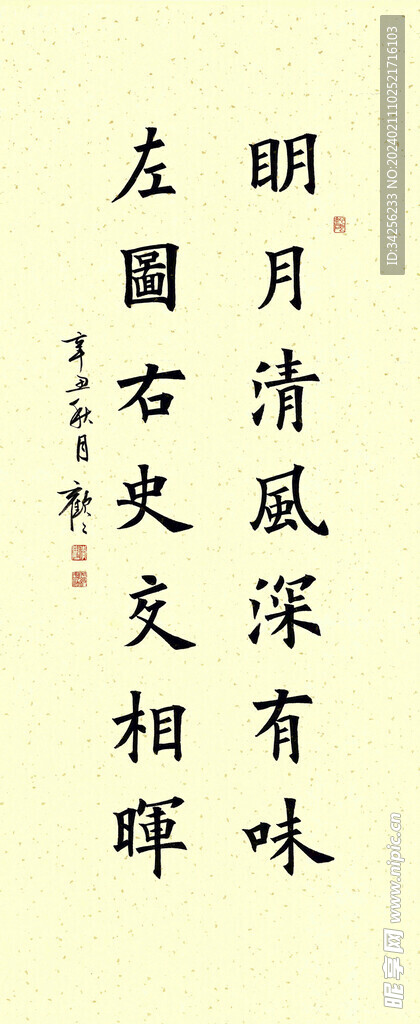 明月清風深有味
左圖右史交相暉
辛丑秋月
ID:34256233 NO:20240211102521716103
昵享网 www.nipic.cn